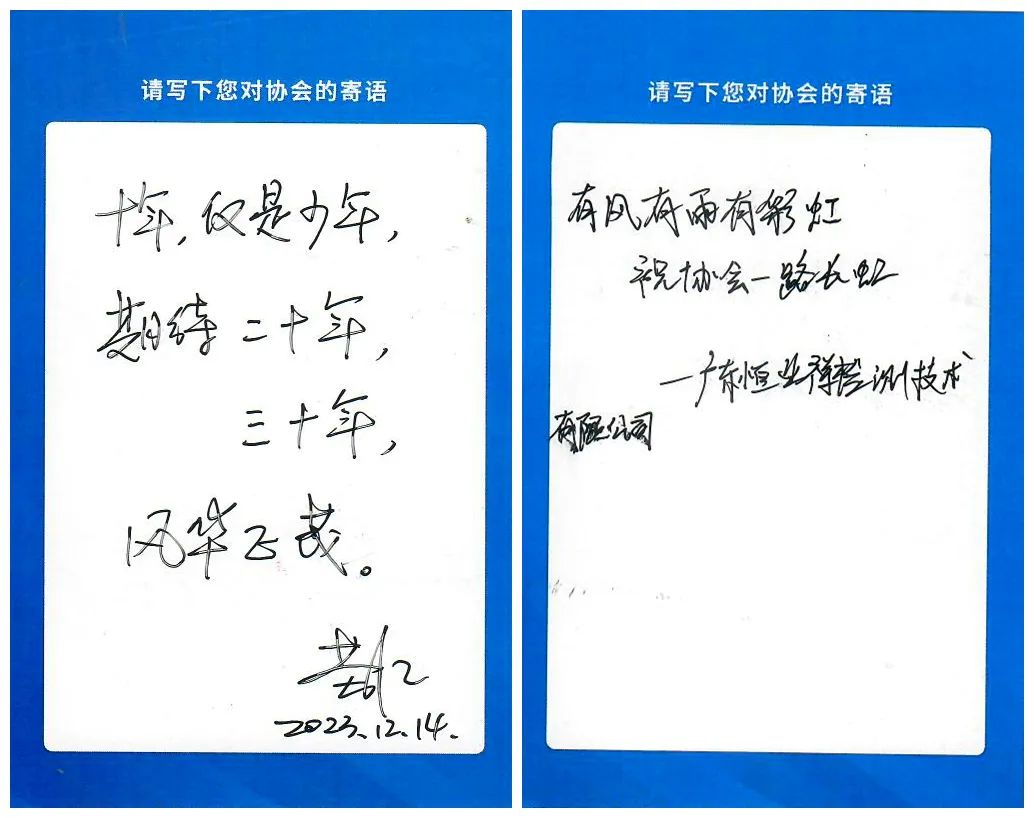 请写下您对协会的寄语
十年,仅是少年,
期待二十年,
三十年,
风华正茂。
2023.12.14.
请写下您对协会的寄语
有风有雨有彩虹
祝协会一路长虹
—广东恒业祥检测技术
有限公司